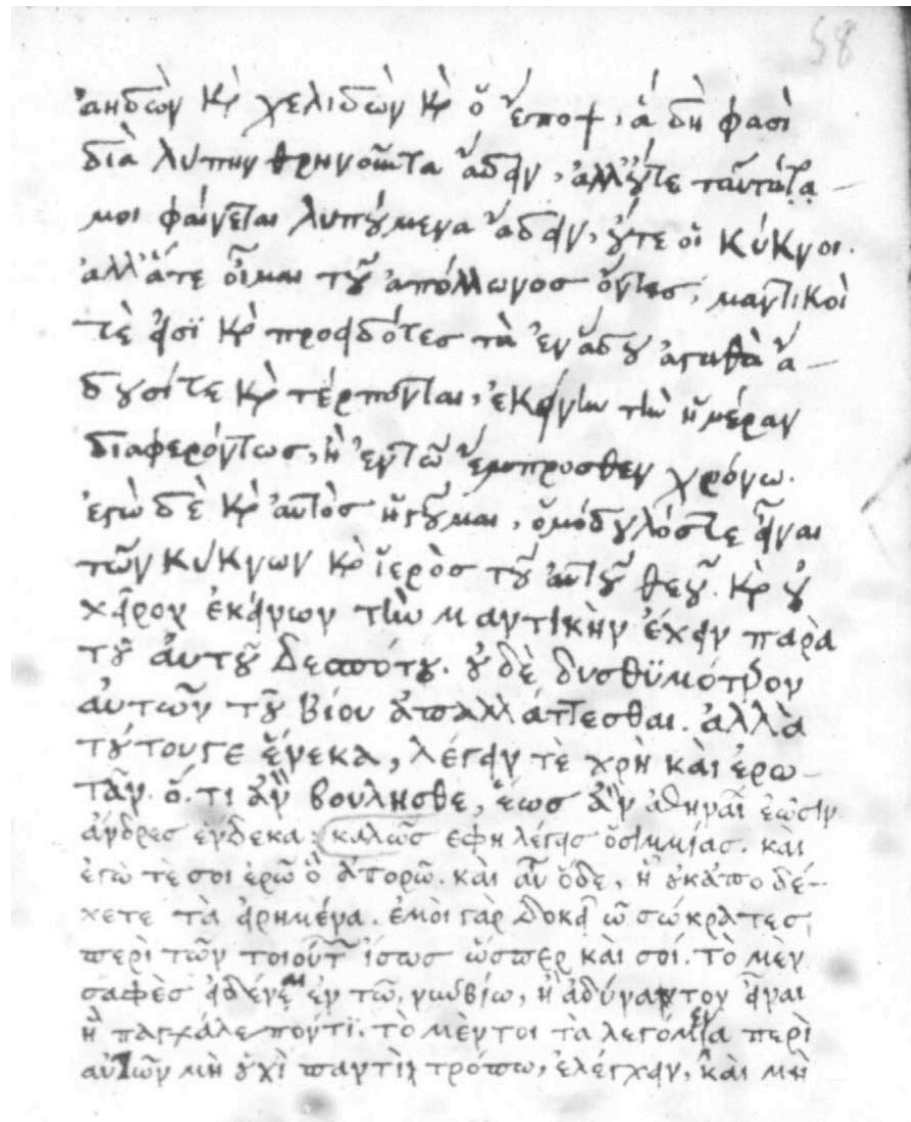 58
ἀηδὼν καὶ χελιδὼν καὶ ὁ ἔποψ, ἃ δή φασι
διὰ λύπην θρηνοῦντα ἄδειν, ἀλλ' οὔτε ταῦτά
μοι φαίνεται λυπούμενα ἄδειν, οὔτε οἱ κύκνοι.
ἀλλ' ἅτε οἶμαι τοῦ ἀπόλλωνοσ ὄντεσ, μαντικοὶ
τὲ εἰσὶ καὶ προειδότεσ τὰ ἐν ἅδου ἀγαθὰ ἄ
δουσί τε καὶ τέρπονται, ἐκείνην τὴν ἡμέραν
διαφερόντωσ, ἢ ἐν τῶ ἔμπροσθεν χρόνω.
ἐγὼ δὲ καὶ αὐτὸσ ἡγοῦμαι, ὁμόδουλόσ τε εἶναι
τῶν κύκνων καὶ ἱερὸσ τοῦ αὐτοῦ θεοῦ. καὶ οὐ
χεῖρον ἐκείνων τὴν μαντικὴν ἔχειν παρὰ
τοῦ αὐτοῦ δεσπότου. οὐδὲ δυσθυμότερον
αὐτῶν τοῦ βίου ἀπαλλάττεσθαι. ἀλλὰ
τούτου γε ἕνεκα, λέγειν τὲ χρὴ καὶ ἐρω-
τᾶν. ὅ. τι ἂν βούλησθε, ἕωσ ἂν ἀθηναῖ ἐῶσιν
ἄνδρεσ ἕνδεκα: καλῶσ ἔφη λέγεισ ὁ σιμμίασ. καὶ
ἐγώ τέ σοι ἐρῶ ὃ ἀπορῶ. καὶ αὖ ὅδε, ἧ οὐκ ἀποδέ-
χεται τὰ εἰρημένα. ἐμοὶ γὰρ δοκεῖ ὦ σώκρατεσ,
περὶ τῶν τοιούτ ἴσωσ ὥσπερ καὶ σοί. τὸ μὲν
σαφὲσ εἰδέναι ἐν τῶ νῦν βίω, ἢ ἀδύνατον εἶναι
ἢ παγχάλεπόν τι. τὸ μέντοι τὰ λεγόμενα περὶ
αὐτῶν μὴ οὐχὶ παντὶ τρόπω, ἐλέγχειν, καὶ μὴ